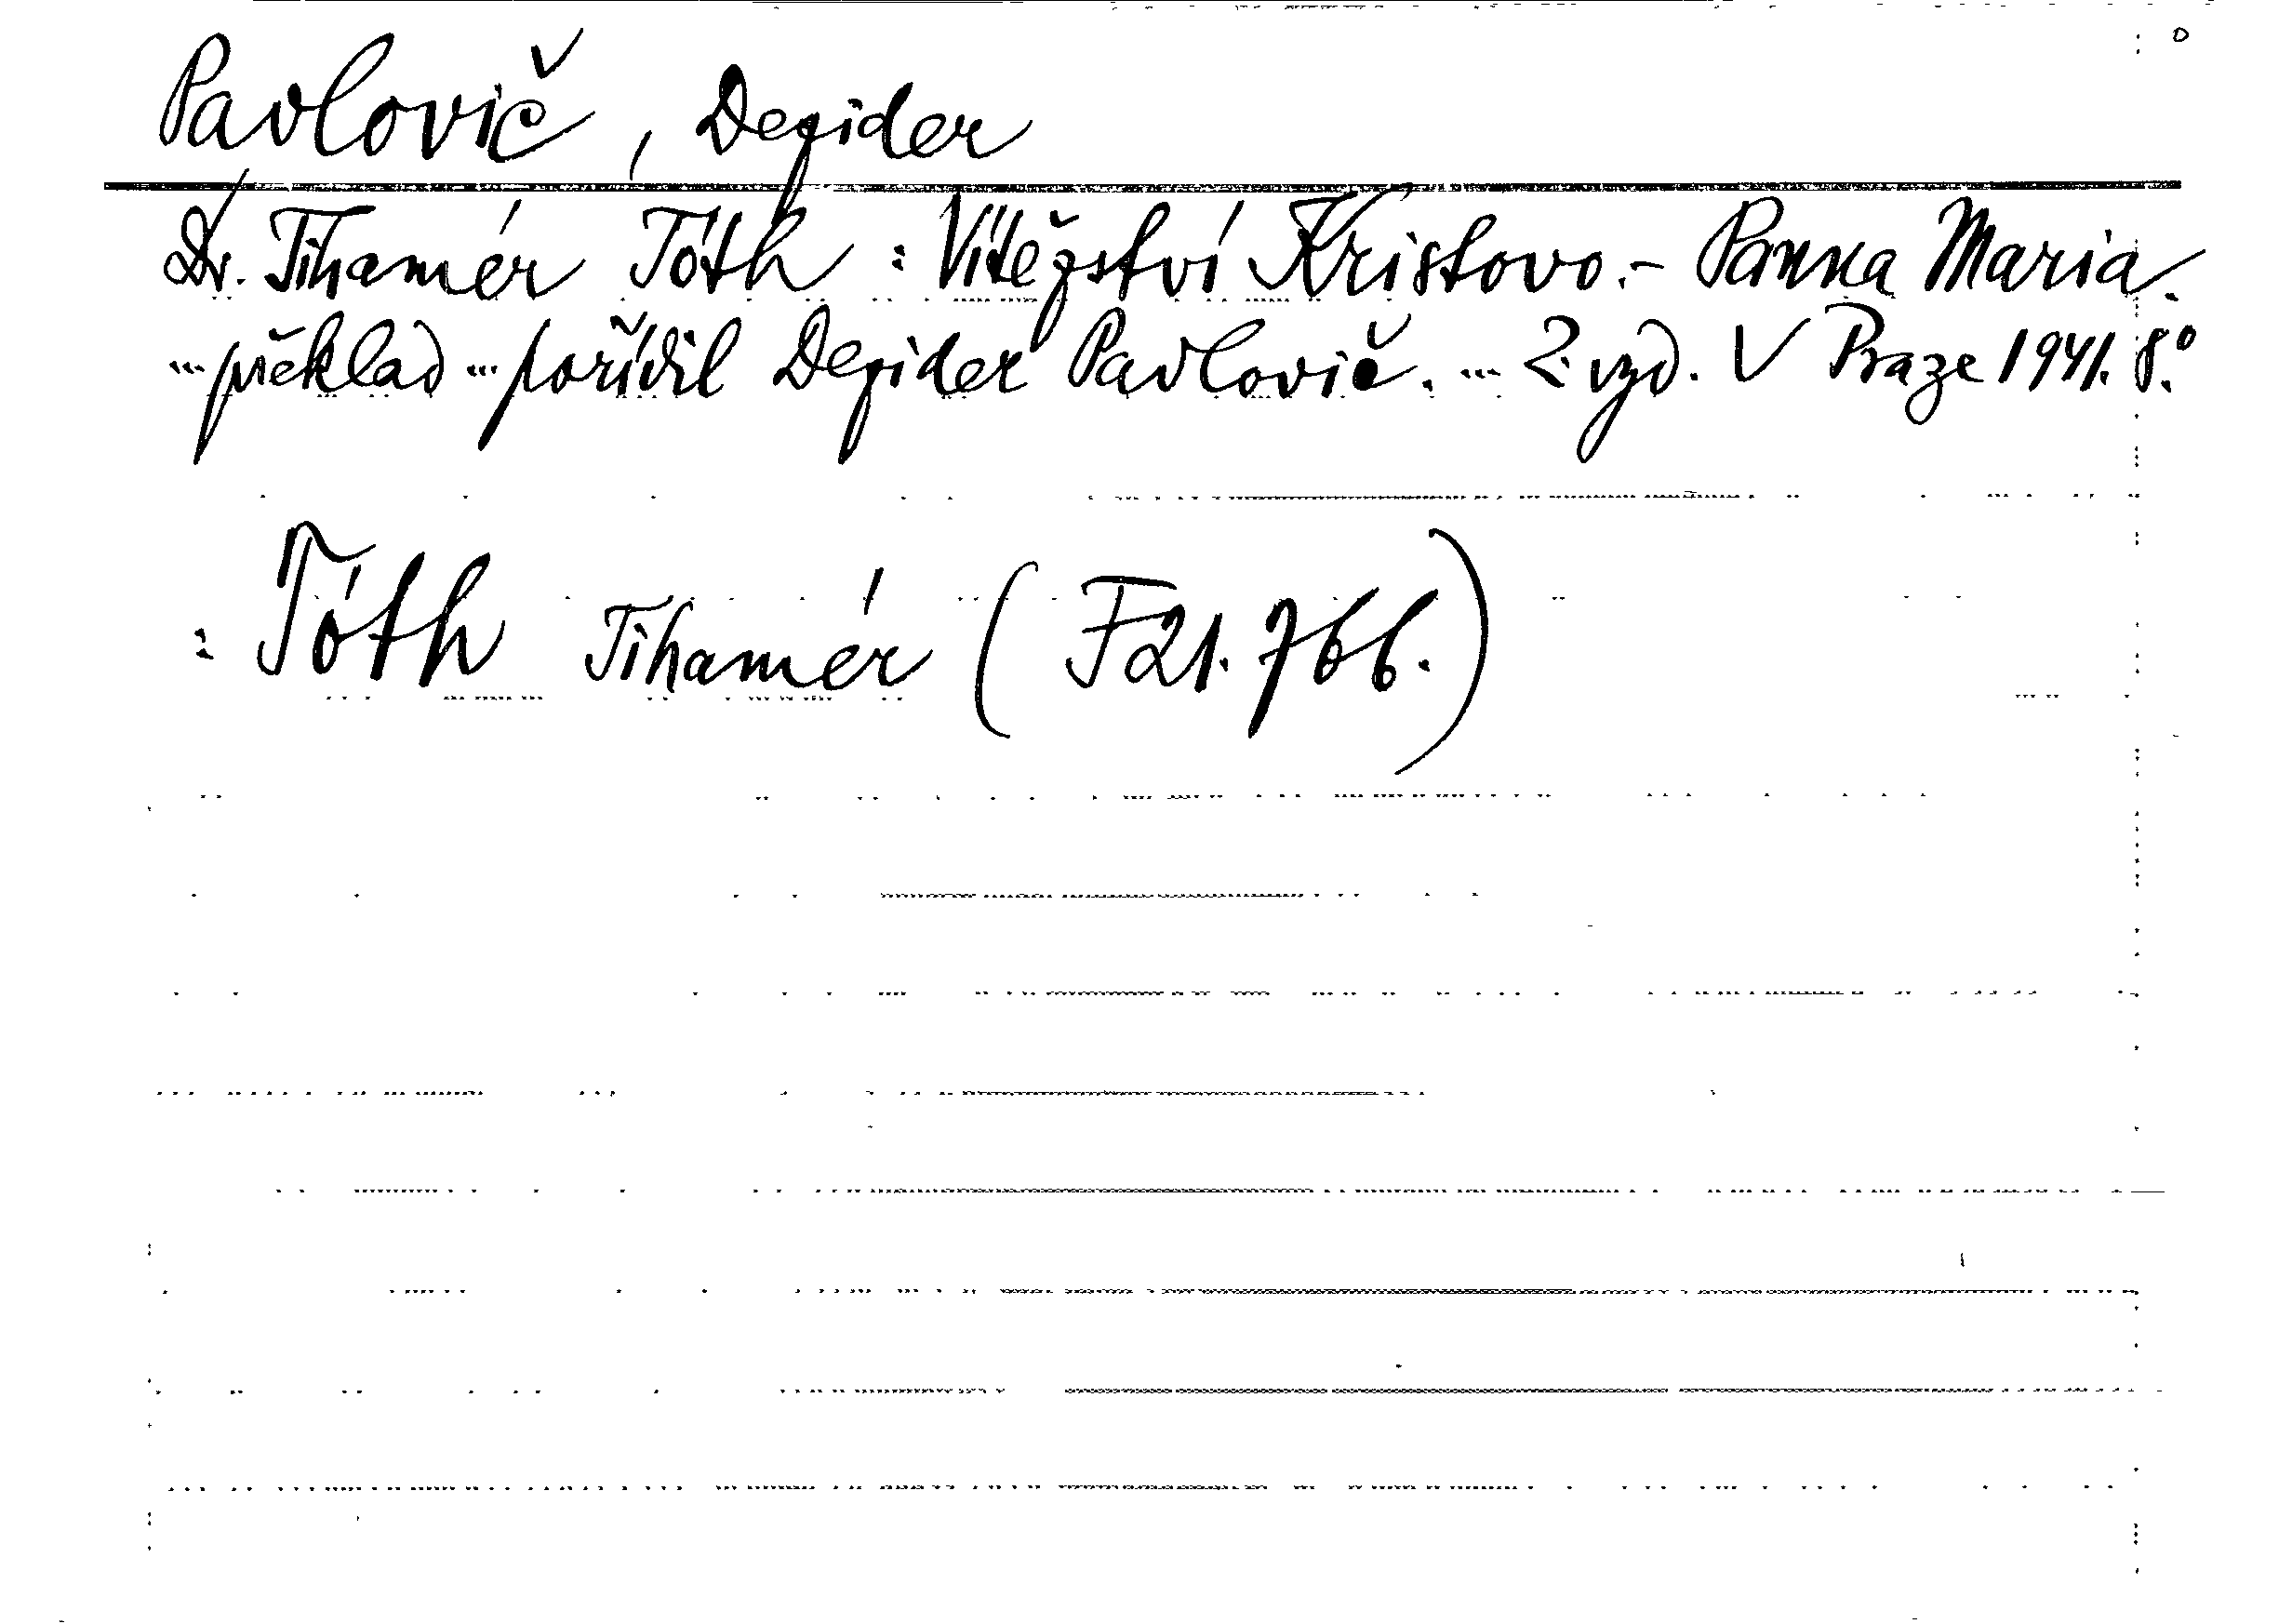 Pavlovič, Dezider
Dr. Tihamér Tóth : Vítězství Kristovo. - Panna Maria.
... překlad ... pořídil Dezider Pavlovič. ... 2. vyd. V Praze 1941. 8.°
: Tóth Tihamér (F21.766.)